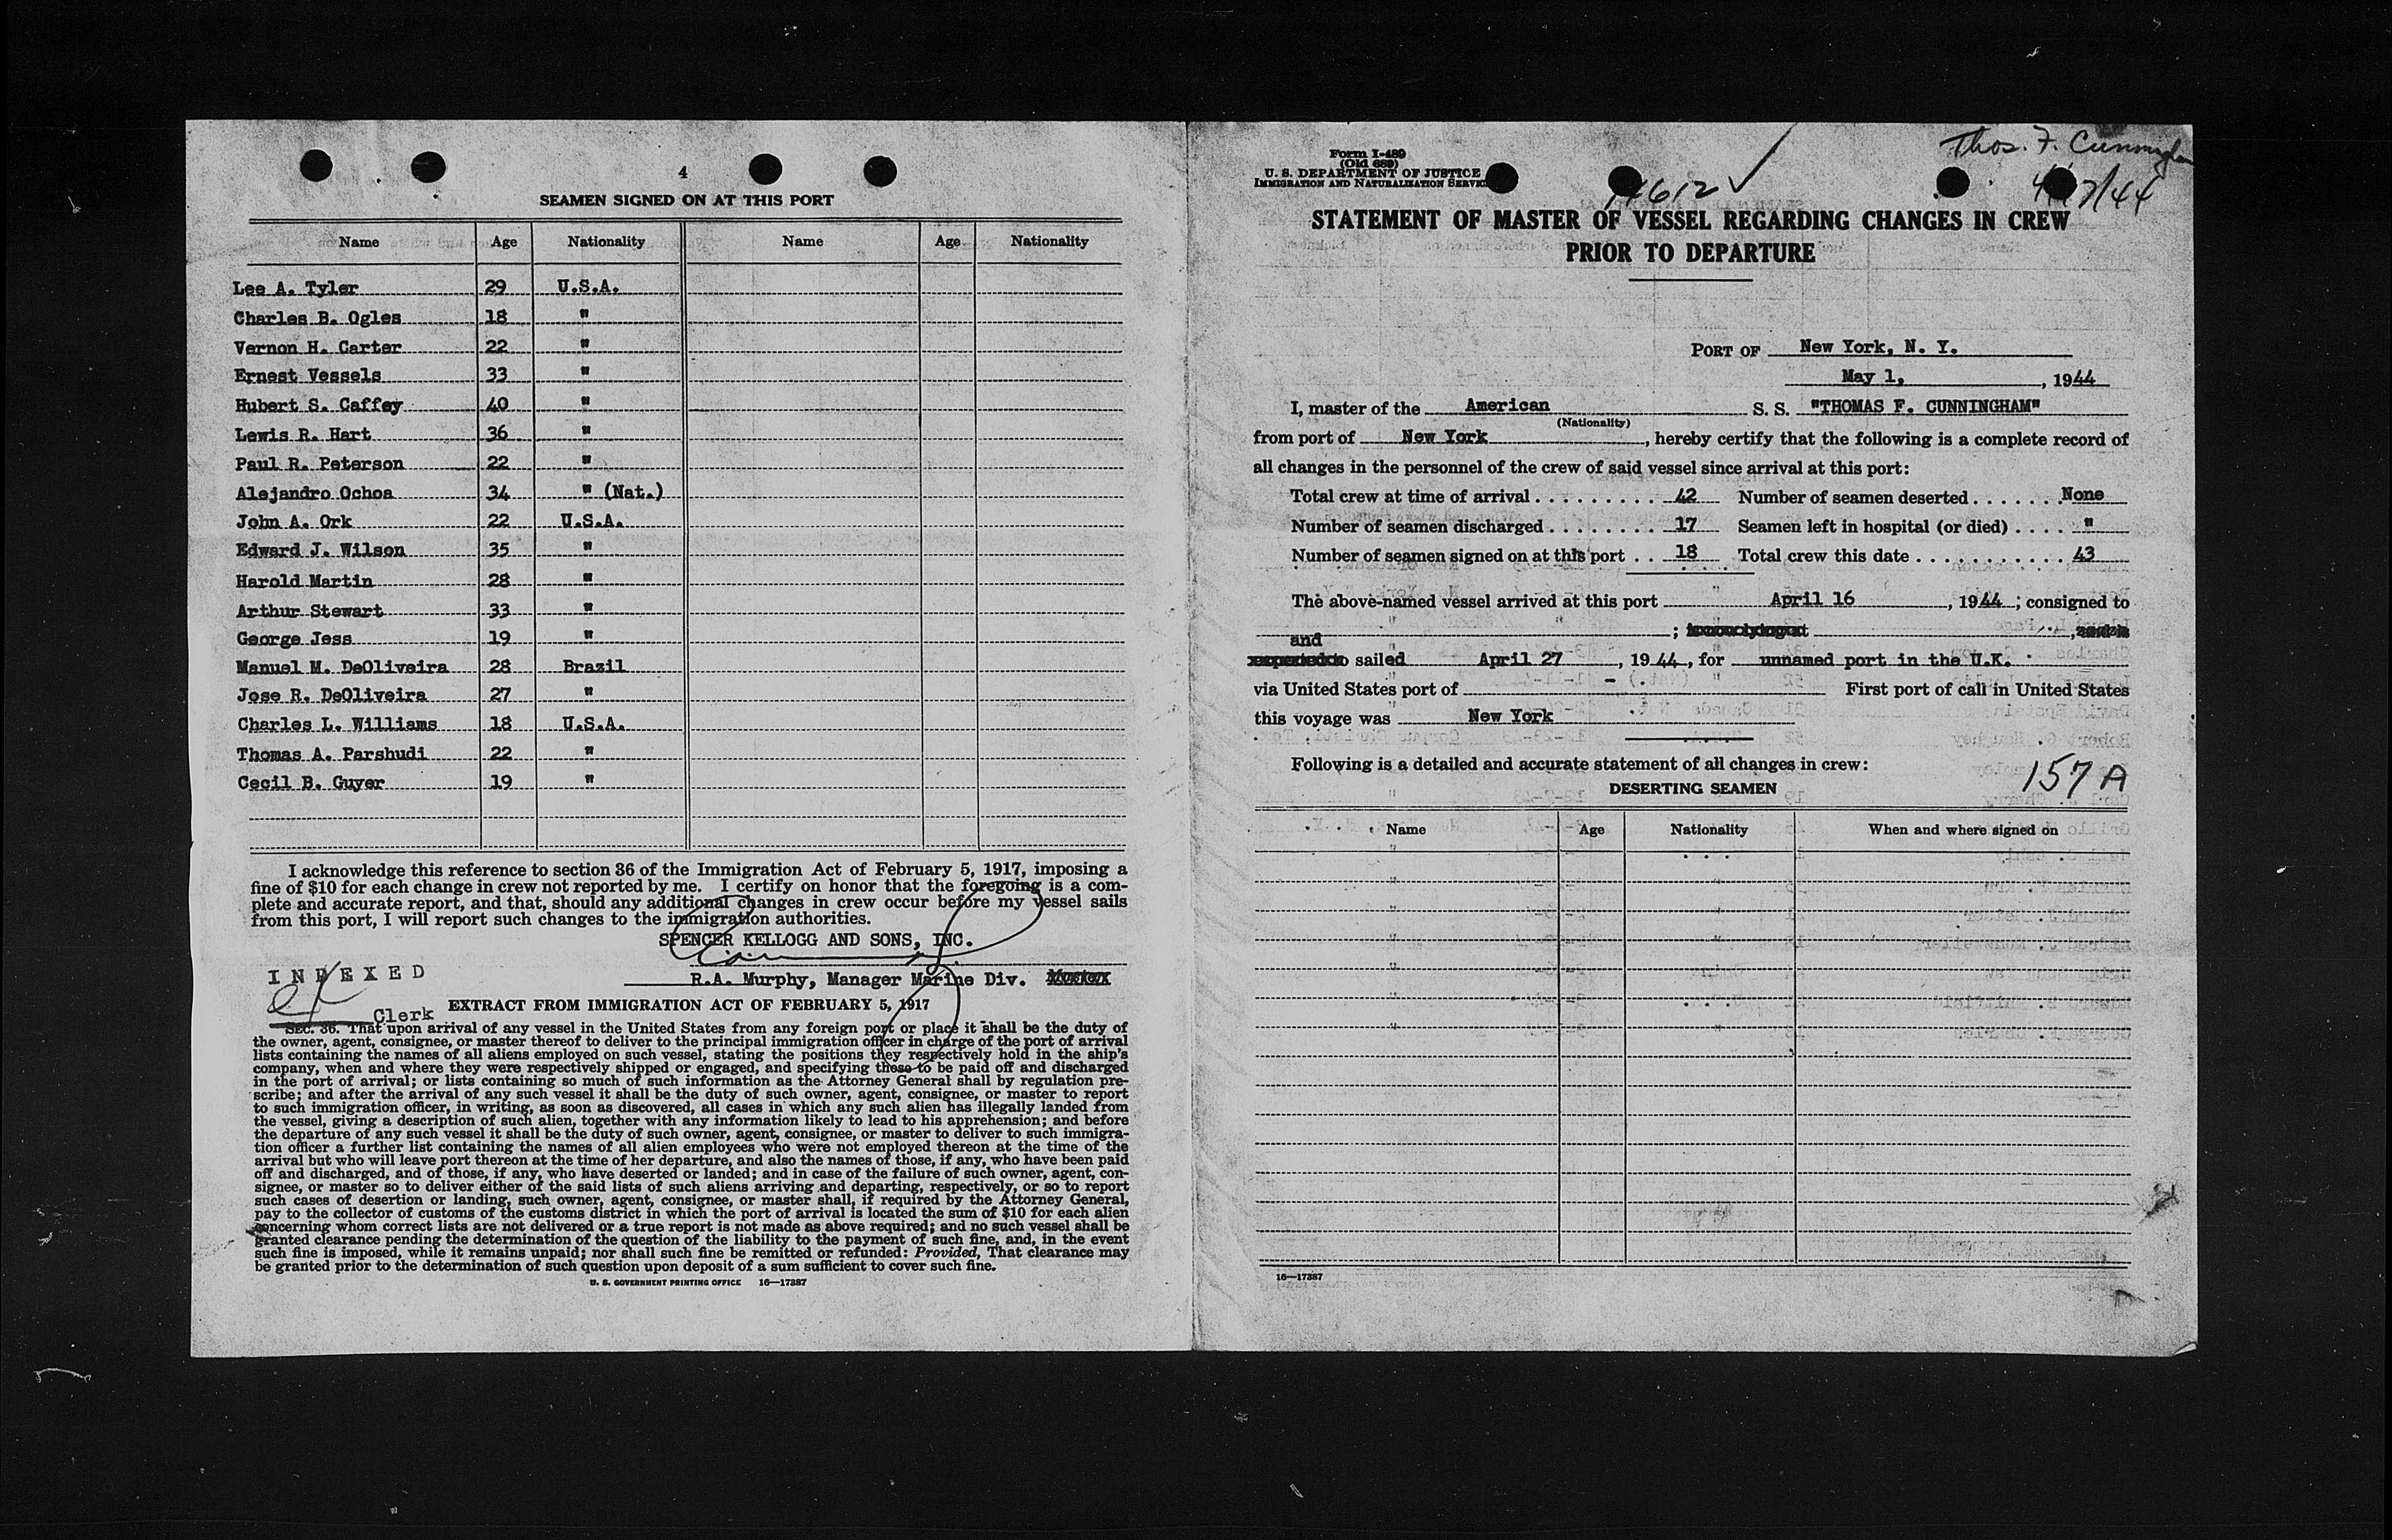 4
SEAMEN SIGNED ON AT THIS PORT
Name Age Nationality Name Age Nationality
Lee A. Tyler 29 U.S.A.
Charles B. Ogles 18 "
Vernon H. Carter 22 "
Ernest Vessels 33 "
Hubert S. Caffey 40 "
Lewis R. Hart 36 "
Paul R. Peterson 22 "
Alejandro Ochoa 34 " (Nat.)
John A. Ork 22 U.S.A.
Edward J. Wilson 35 "
Harold Martin 28 "
Arthur Stewart 33 "
George Jess 19 "
Manuel M. DeOliveira 28 Brazil
Jose R. DeOliveira 27 "
Charles L. Williams 18 U.S.A.
Thomas A. Parshudi 22 "
Cecil B. Guyer 19 "
I acknowledge this reference to section 36 of the Immigration Act of February 5, 1917, imposing a
fine of $10 for each change in crew not reported by me. I certify on honor that the foregoing is a com-
plete and accurate report, and that, should any additional changes in crew occur before my vessel sails
from this port, I will report such changes to the immigration authorities.
SPENCER KELLOGG AND SONS, INC.
INDEXED
R.A. Murphy, Manager Marine Div.
EXTRACT FROM IMMIGRATION ACT OF FEBRUARY 5, 1917
Clerk
SEC. 36. That upon arrival of any vessel in the United States from any foreign port or place it shall be the duty of
the owner, agent, consignee, or master thereof to deliver to the principal immigration officer in charge of the port of arrival
lists containing the names of all aliens employed on such vessel, stating the positions they respectively hold in the ship's
company, when and where they were respectively shipped or engaged, and specifying those to be paid off and discharged
in the port of arrival; or lists containing so much of such information as the Attorney General shall by regulation pre-
scribe; and after the arrival of any such vessel it shall be the duty of such owner, agent, consignee, or master to report
to such immigration officer, in writing, as soon as discovered, all cases in which any such alien has illegally landed from
the vessel, giving a description of such alien, together with any information likely to lead to his apprehension; and before
the departure of any such vessel it shall be the duty of such owner, agent, consignee, or master to deliver to such immigra-
tion officer a further list containing the names of all alien employees who were not employed thereon at the time of the
arrival but who will leave port thereon at the time of her departure, and also the names of those, if any, who have been paid
off and discharged, and of those, if any, who have deserted or landed; and in case of the failure of such owner, agent, con-
signee, or master so to deliver either of the said lists of such aliens arriving and departing, respectively, or so to report
such cases of desertion or landing, such owner, agent, consignee, or master shall, if required by the Attorney General,
pay to the collector of customs of the customs district in which the port of arrival is located the sum of $10 for each alien
concerning whom correct lists are not delivered or a true report is not made as above required; and no such vessel shall be
granted clearance pending the determination of the question of the liability to the payment of such fine, and, in the event
such fine is imposed, while it remains unpaid; nor shall such fine be remitted or refunded: Provided, That clearance may
be granted prior to the determination of such question upon deposit of a sum sufficient to cover such fine.
U. S. GOVERNMENT PRINTING OFFICE 16—17387
Thos. F. Cunningham
Form I-489
(Old 689)
U. S. DEPARTMENT OF JUSTICE
IMMIGRATION AND NATURALIZATION SERVICE
STATEMENT OF MASTER OF VESSEL REGARDING CHANGES IN CREW
PRIOR TO DEPARTURE
PORT OF New York, N. Y.
May 1, , 1944
I, master of the American S. S. "THOMAS F. CUNNINGHAM"
(Nationality)
from port of New York , hereby certify that the following is a complete record of
all changes in the personnel of the crew of said vessel since arrival at this port:
Total crew at time of arrival . . . . . . . . . . 42 Number of seamen deserted . . . . . . None
Number of seamen discharged . . . . . . . . . 17 Seamen left in hospital (or died) . . . . "
Number of seamen signed on at this port . . 18 Total crew this date . . . . . . . . . . . 43
The above-named vessel arrived at this port April 16 , 1944 ; consigned to
;
and
to sailed April 27 , 1944, for unnamed port in the U.K.
via United States port of - First port of call in United States
this voyage was New York
Following is a detailed and accurate statement of all changes in crew:
157A
DESERTING SEAMEN
Name Age Nationality When and where signed on
16—17387